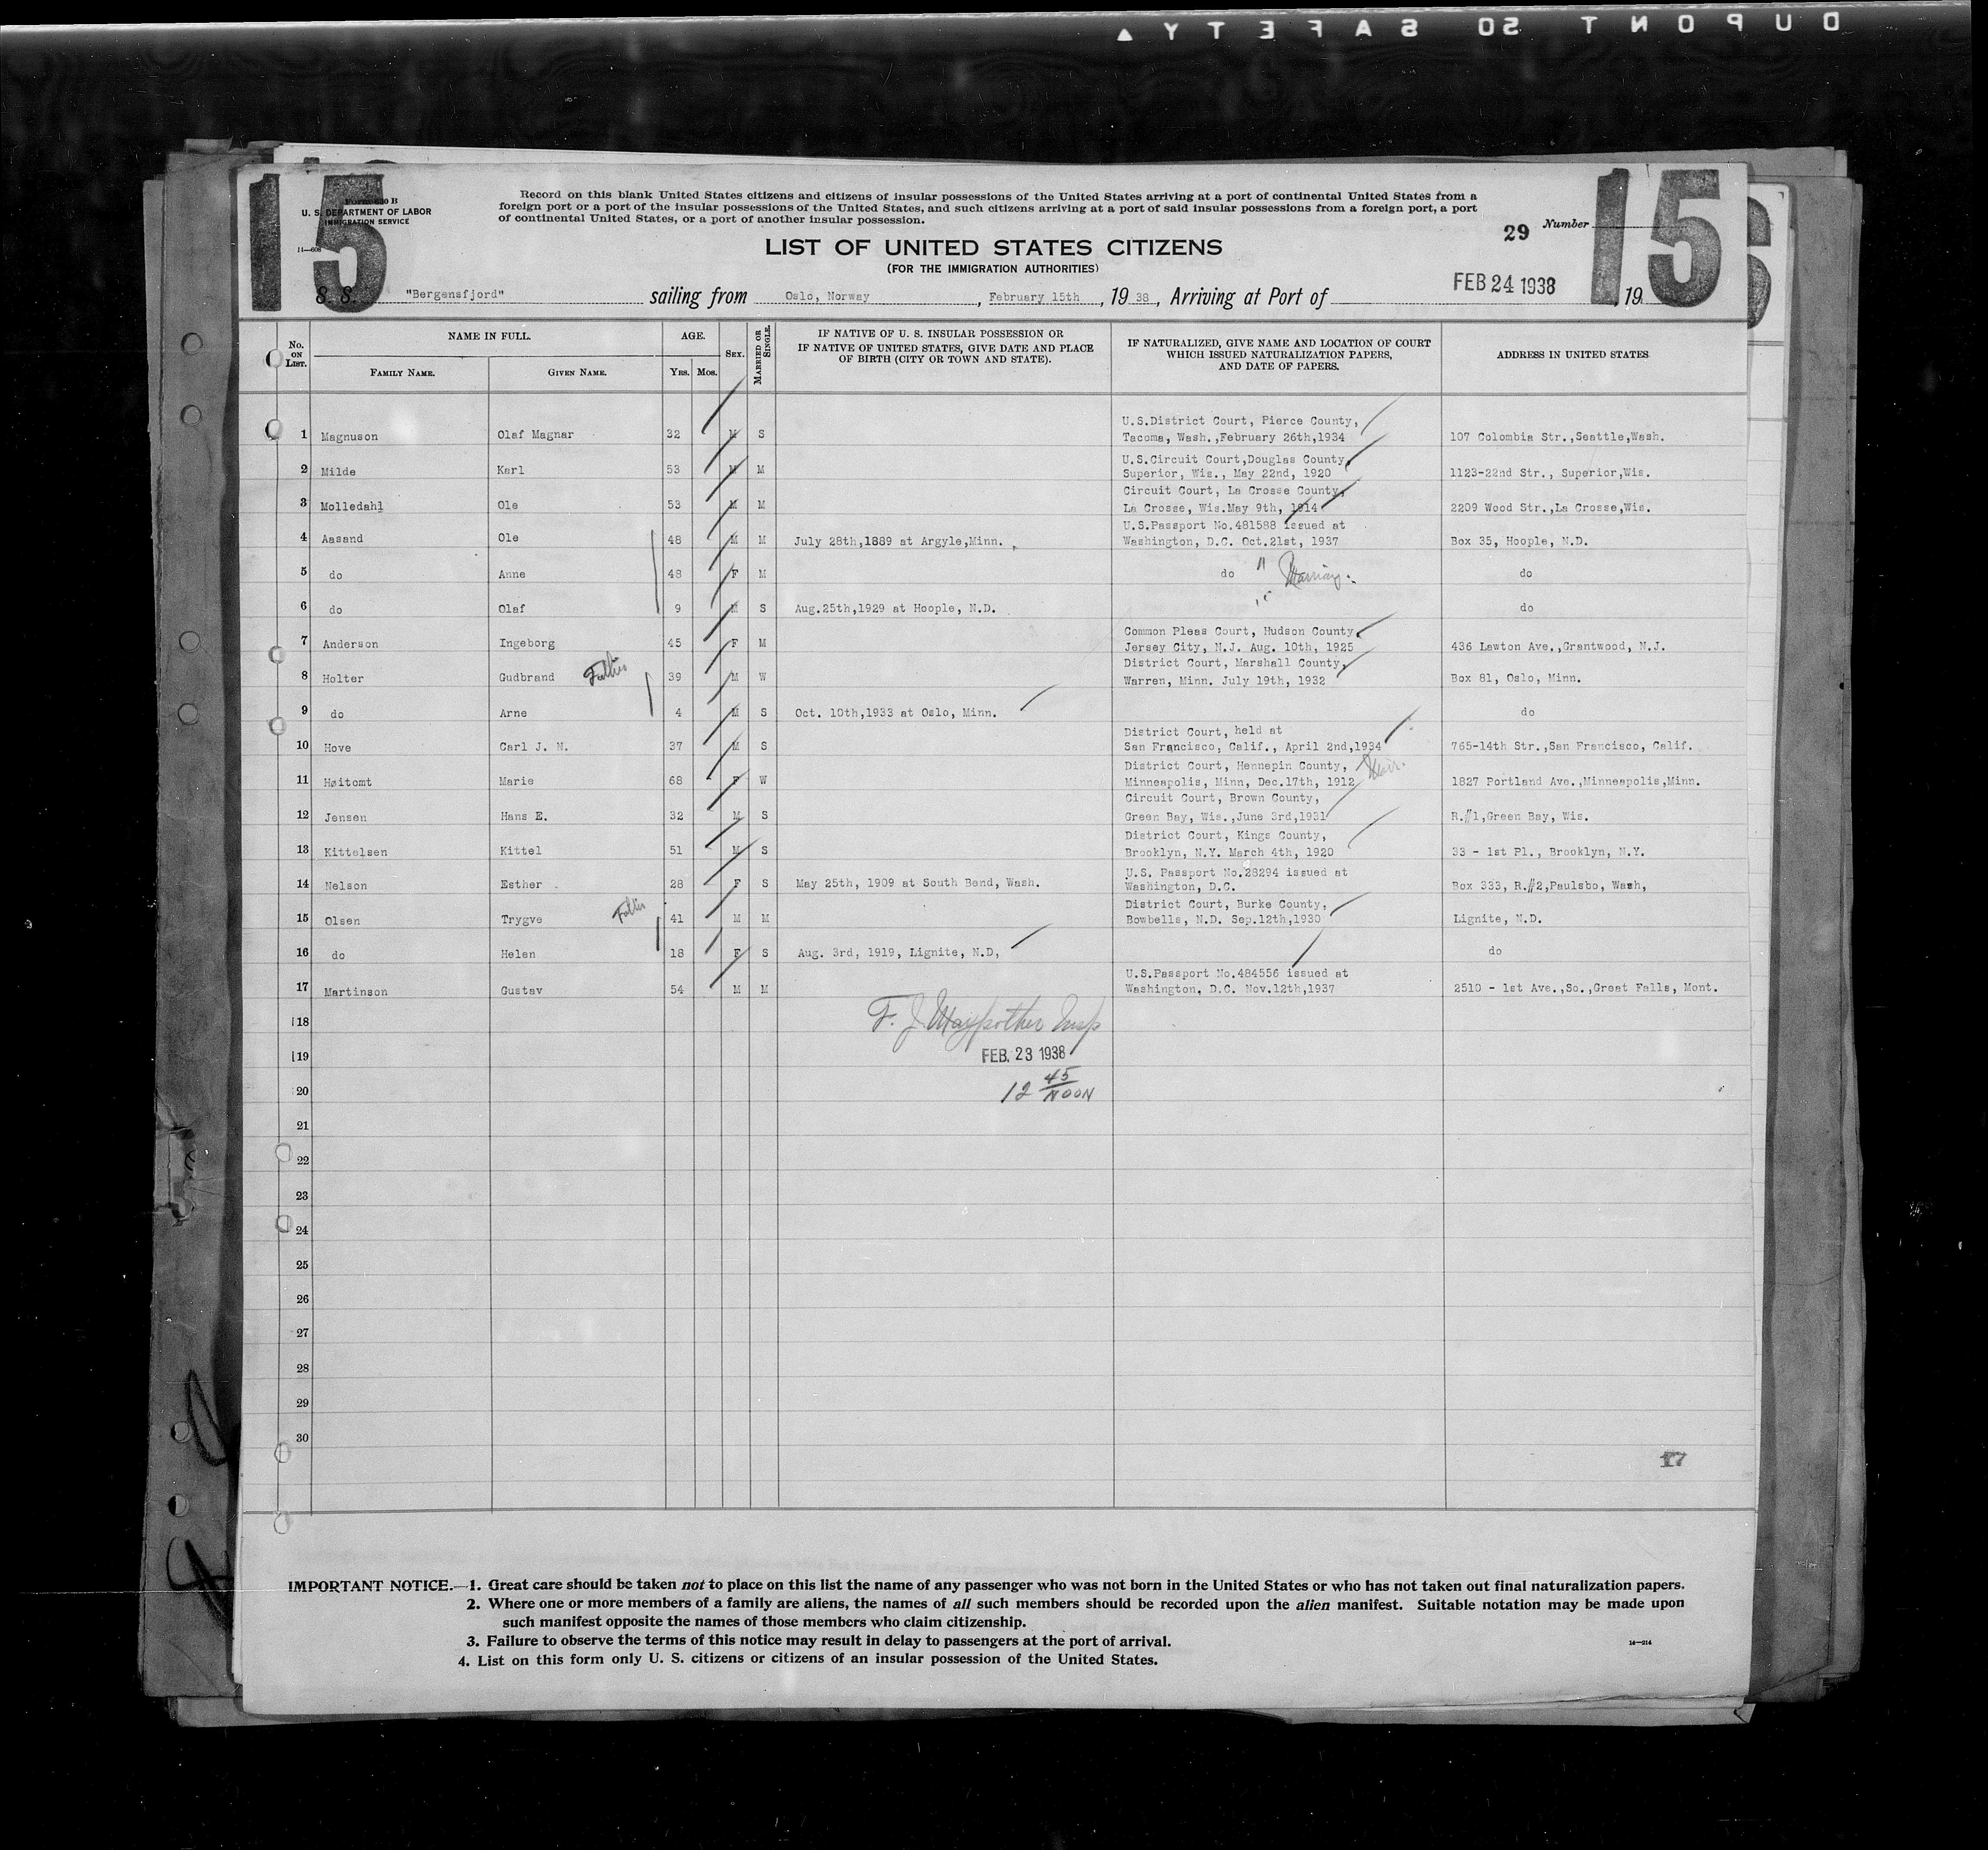 DUPONT 50 SAFETY
15
15
Form 630 B
U. S. DEPARTMENT OF LABOR
IMMIGRATION SERVICE
Record on this blank United States citizens and citizens of insular possessions of the United States arriving at a port of continental United States from a
foreign port or a port of the insular possessions of the United States, and such citizens arriving at a port of said insular possessions from a foreign port, a port
of continental United States, or a port of another insular possession.
29 Number
LIST OF UNITED STATES CITIZENS
(FOR THE IMMIGRATION AUTHORITIES)
S. S. "Bergensfjord" sailing from Oslo, Norway, February 15th, 1938, Arriving at Port of FEB 24 1938, 19
No. ON LIST. NAME IN FULL. AGE. SEX. MARRIED OR SINGLE. IF NATIVE OF U. S. INSULAR POSSESSION OR IF NATIVE OF UNITED STATES, GIVE DATE AND PLACE OF BIRTH (CITY OR TOWN AND STATE). IF NATURALIZED, GIVE NAME AND LOCATION OF COURT WHICH ISSUED NATURALIZATION PAPERS, AND DATE OF PAPERS. ADDRESS IN UNITED STATES
FAMILY NAME. GIVEN NAME. YRS. MOS.
U.S.District Court, Pierce County,
1 Magnuson Olaf Magnar 32 M S Tacoma, Wash.,February 26th,1934 107 Colombia Str.,Seattle,Wash.
U.S.Circuit Court,Douglas County,
2 Milde Karl 53 M M Superior, Wis., May 22nd, 1920 1123-22nd Str., Superior,Wis.
Circuit Court, La Crosse County,
3 Molledahl Ole 53 M M La Crosse, Wis.May 9th, 1914 2209 Wood Str.,La Crosse,Wis.
U.S.Passport No.481588 issued at
4 Aasand Ole 48 M M July 28th,1889 at Argyle,Minn. Washington, D.C. Oct.21st, 1937 Box 35, Hoople, N.D.
5 do Anne 48 F M do " Marriag. do
6 do Olaf 9 M S Aug.25th,1929 at Hoople, N.D. do
Common Pleas Court, Hudson County,
7 Anderson Ingeborg 45 F M Jersey City, N.J. Aug. 10th, 1925 436 Lawton Ave.,Grantwood, N.J.
District Court, Marshall County,
8 Holter Gudbrand Father 39 M W Warren, Minn. July 19th, 1932 Box 81, Oslo, Minn.
9 do Arne 4 M S Oct. 10th,1933 at Oslo, Minn. do
District Court, held at
10 Hove Carl J. N. 37 M S San Francisco, Calif., April 2nd,1934 765-14th Str.,San Francisco, Calif.
District Court, Hennepin County,
11 Høitomt Marie 68 F W Minneapolis, Minn, Dec.17th, 1912 1827 Portland Ave.,Minneapolis,Minn.
Circuit Court, Brown County,
12 Jensen Hans E. 32 M S Green Bay, Wis.,June 3rd,1931 R.#1,Green Bay, Wis.
District Court, Kings County,
13 Kittelsen Kittel 51 M S Brooklyn, N.Y. March 4th, 1920 33 - 1st Pl., Brooklyn, N.Y.
U.S. Passport No.28294 issued at
14 Nelson Esther 28 F S May 25th, 1909 at South Bend, Wash. Washington, D.C. Box 333, R.#2,Paulsbo, Wash,
District Court, Burke County,
15 Olsen Trygve Father 41 M M Bowbells, N.D. Sep.12th,1930 Lignite, N.D.
16 do Helen 18 F S Aug. 3rd, 1919, Lignite, N.D, do
U.S.Passport No.484556 issued at
17 Martinson Gustav 54 M M Washington, D.C. Nov.12th,1937 2510 - 1st Ave.,So.,Great Falls, Mont.
18 F. J. Insp
19 FEB. 23 1938
20 12 45 NOON
21
22
23
24
25
26
27
28
29
30
17
IMPORTANT NOTICE.—1. Great care should be taken not to place on this list the name of any passenger who was not born in the United States or who has not taken out final naturalization papers.
2. Where one or more members of a family are aliens, the names of all such members should be recorded upon the alien manifest. Suitable notation may be made upon
such manifest opposite the names of those members who claim citizenship.
3. Failure to observe the terms of this notice may result in delay to passengers at the port of arrival.
14—214
4. List on this form only U. S. citizens or citizens of an insular possession of the United States.